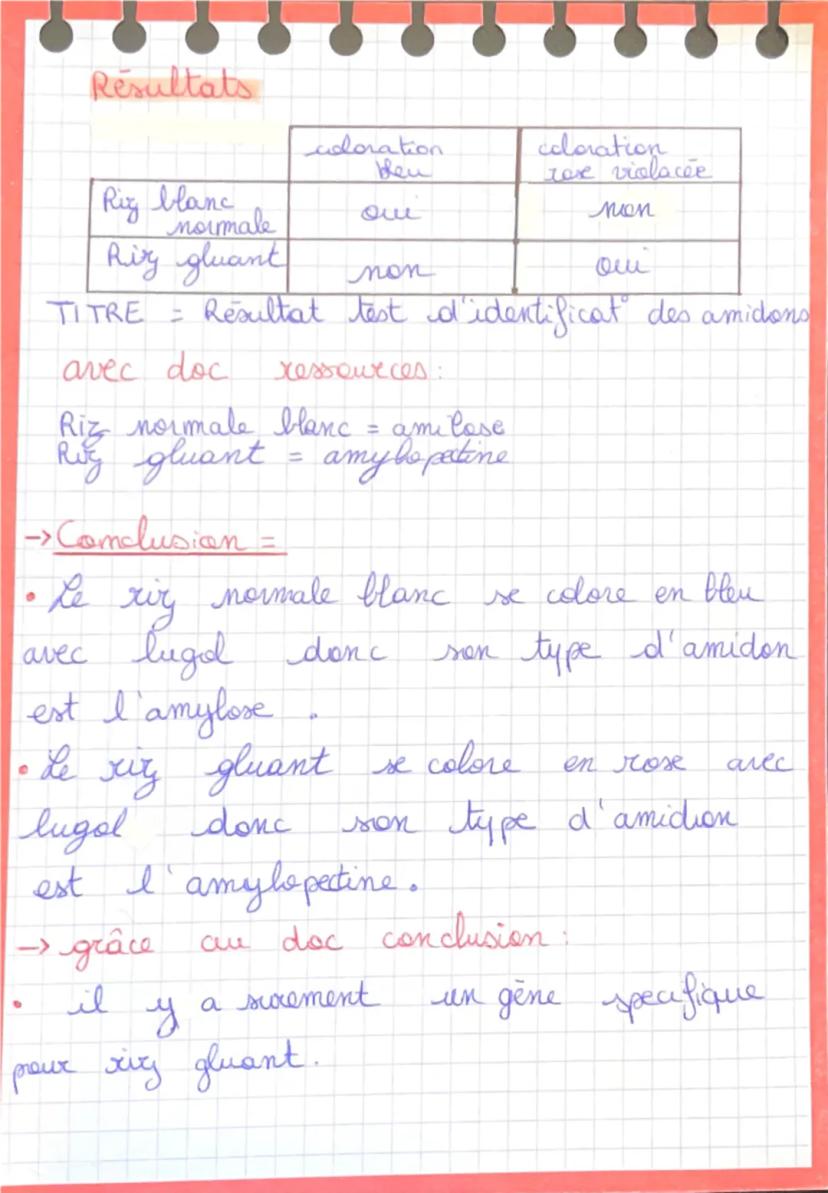 Résultats
coloration bleu
coloration rose violacée
Riz blanc normale
oui
non
Riz gluant
non
oui
TITRE = Résultat test d'identificat° des amidons
avec doc ressources :
Riz normale blanc = amilose
Riz gluant = amylopectine
-> Conclusion =
• Le riz normale blanc se colore en bleu
avec lugol donc son type d'amidon
est l'amylose .
• Le riz gluant se colore en rose avec
lugol donc son type d'amidon
est l'amylopectine.
-> grâce au doc conclusion :
• il y a surement un gène specifique
pour riz gluant.